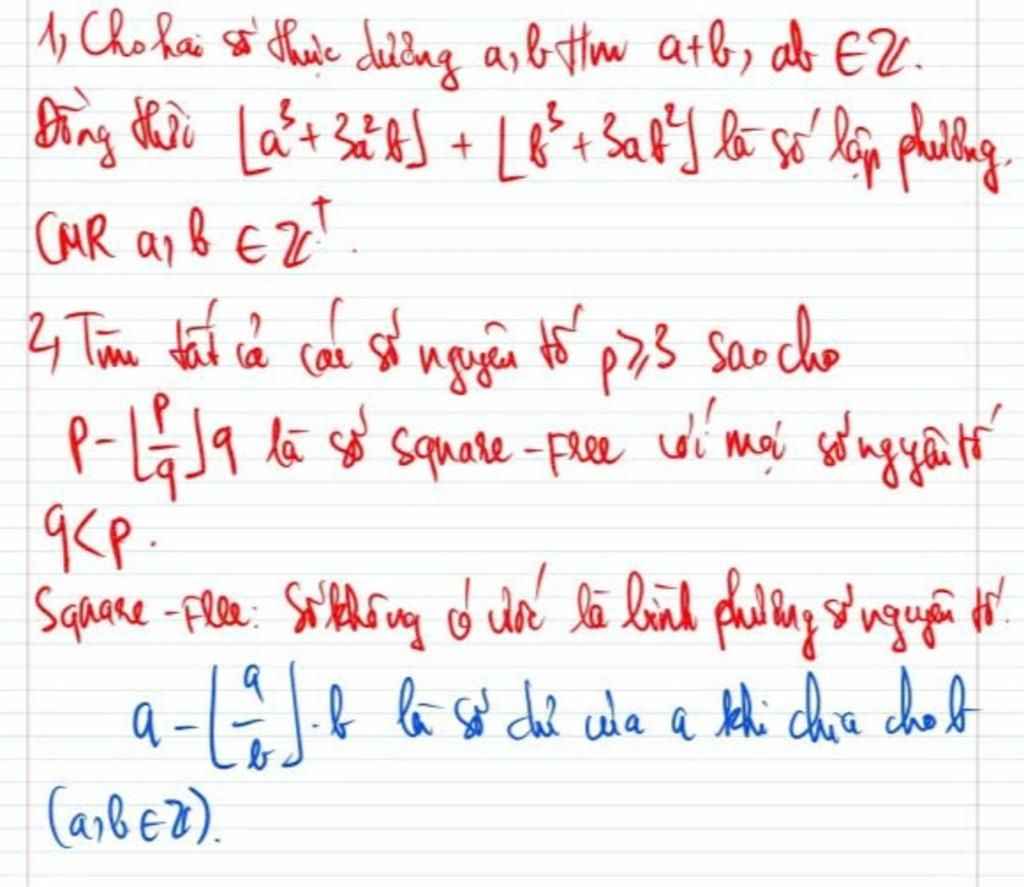 1, Cho hai số thực dương a, b t/m a+b, ab ∈ ℤ.
Đồng thời ⌊a³ + 3a²b⌋ + ⌊b³ + 3ab²⌋ là số lập phương.
CMR a, b ∈ ℤ⁺.
2, Tìm tất cả các số nguyên tố p ⩾ 3 sao cho
p - ⌊p/q⌋q là số square-Free với mọi số nguyên tố
q < p.
Square-Free: Số không có ước là bình phương số nguyên tố.
a - ⌊a/b⌋.b là số dư của a khi chia cho b
(a, b ∈ ℤ).